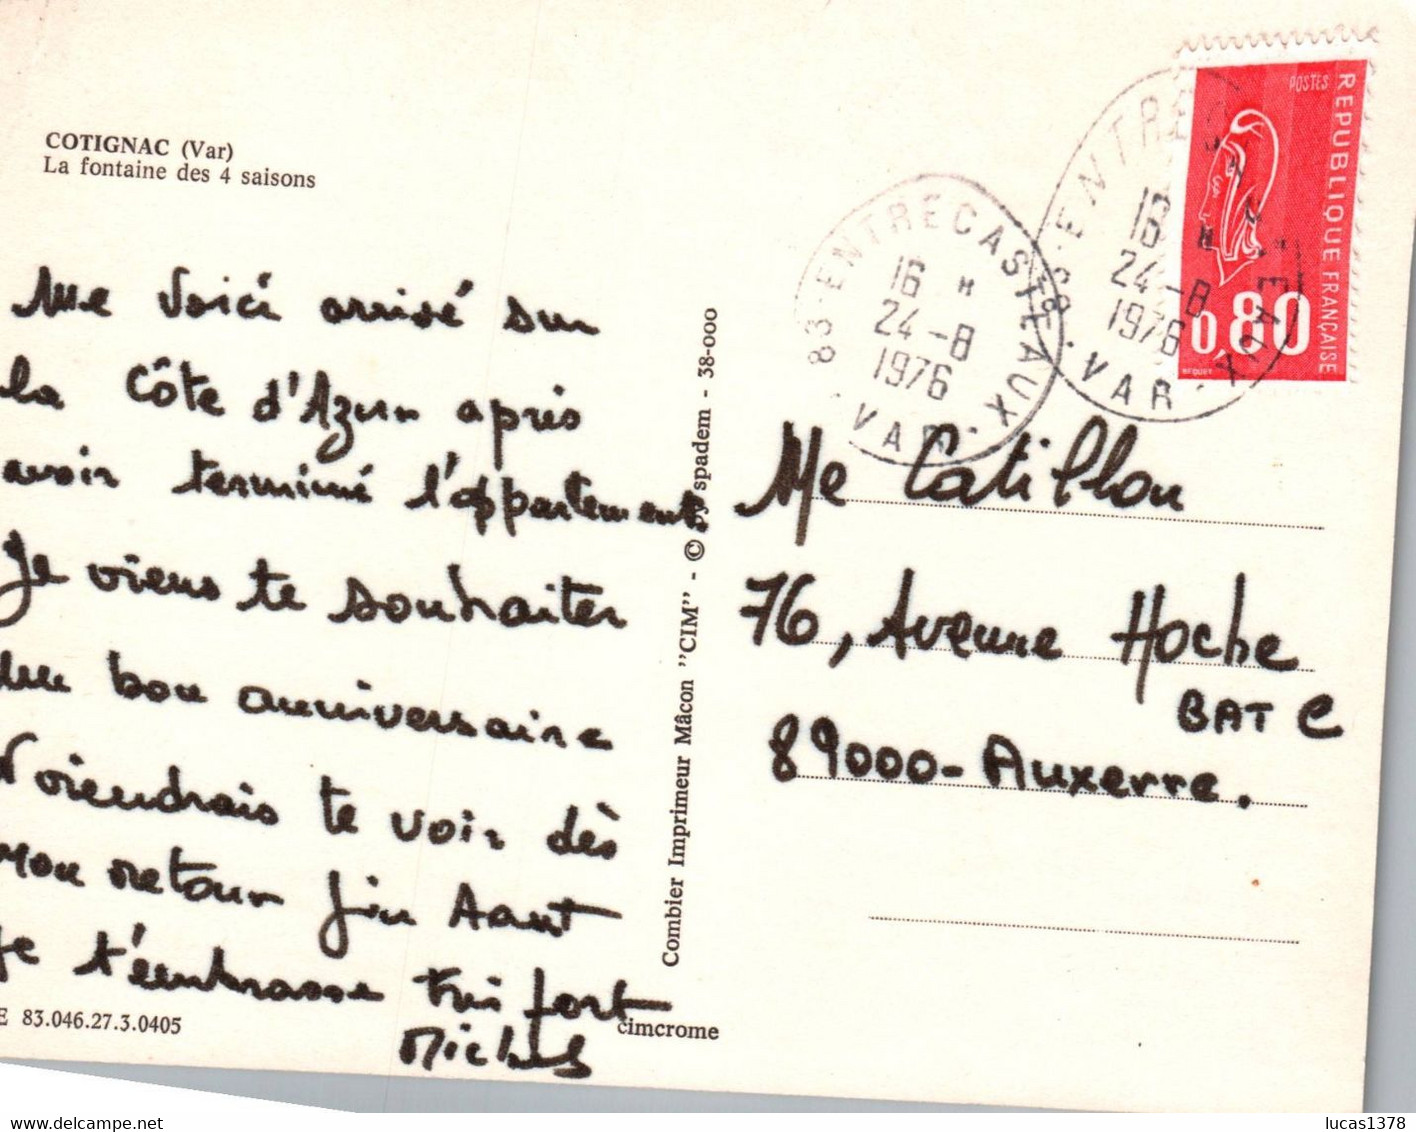 COTIGNAC (Var)
La fontaine des 4 saisons
Me voici arrivé sur
la Côte d'Azur après
avoir terminé l'appartement
Je viens te souhaiter
un bon anniversaire
viendrais te voir dès
mon retour fin Aout
Je t'embrasse très fort
Michel
E 83.046.27.3.0405
cimcrome
Combier Imprimeur Mâcon "CIM" - © by spadem - 38-000
83 - ENTRECASTEAUX - VAR
16 H
24 - 8
1976
83 - ENTRECASTEAUX - VAR
16 H
24 - 8
1976
POSTES
REPUBLIQUE FRANÇAISE
0,80
BEQUET
Me Catillon
76, Avenue Hoche
BAT C
89000 - Auxerre.
www.delcampe.net
lucas1378